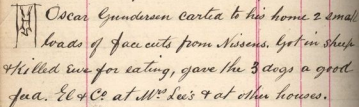 H Oscar Gundersen carted to his home 2 small
loads of face cuts from Nissens. Got in sheep
& killed Ewe for eating, gave the 3 dogs a good
fead. El & Co. at Mrs Lee's & at other houses.